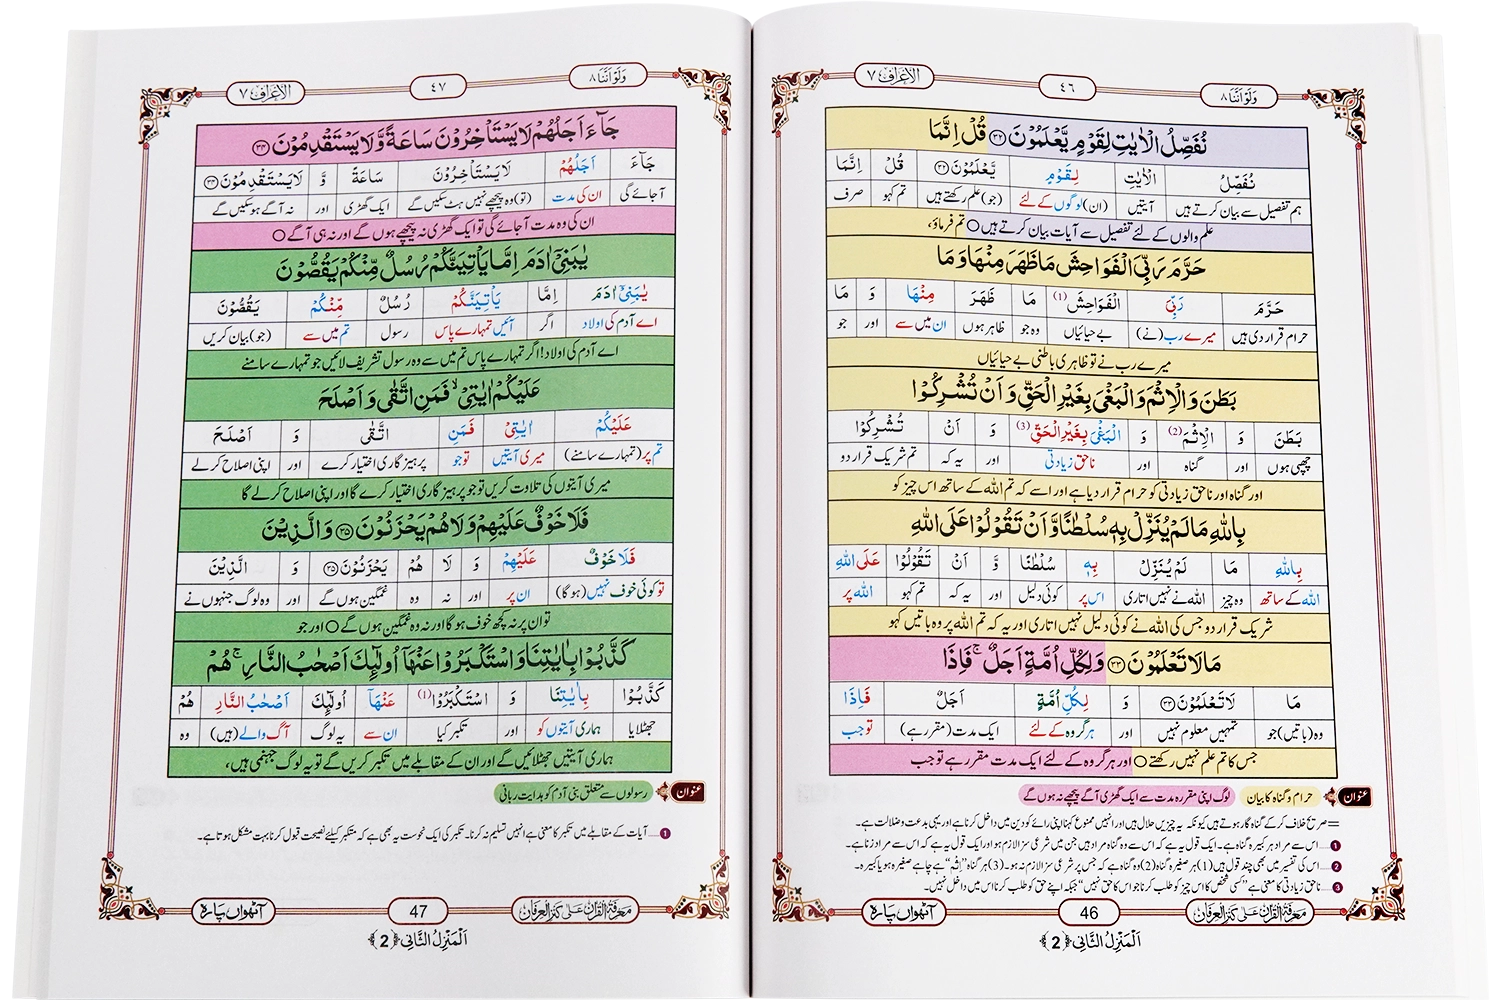 وَلَوْ اَنَّنَا ٨
٤٦
الْاَعْرَاف ٧
نُفَصِّلُ الْاٰیٰتِ لِقَوْمٍ یَّعْلَمُوْنَ ﴿۳۲﴾ قُلْ اِنَّمَا
نُفَصِّلُ الْاٰیٰتِ لِقَوْمٍ یَّعْلَمُوْنَ ﴿۳۲﴾ قُلْ اِنَّمَا
ہم تفصیل سے بیان کرتے ہیں آیتیں (ان) لوگوں کے لئے (جو) علم رکھتے ہیں تم کہو صرف
علم والوں کے لئے تفصیل سے آیات بیان کرتے ہیں ○ تم فرماؤ،
حَرَّمَ رَبِّیَ الْفَوَاحِشَ مَا ظَهَرَ مِنْهَا وَ مَا
حَرَّمَ رَبِّیَ الْفَوَاحِشَ (1) مَا ظَهَرَ مِنْهَا وَ مَا
حرام قرار دی ہیں میرے رب (نے) بے حیائیاں وہ جو ظاہر ہوں ان میں سے اور جو
میرے رب نے تو ظاہری باطنی بے حیائیاں
بَطَنَ وَ الْاِثْمَ وَ الْبَغْیَ بِغَیْرِ الْحَقِّ وَ اَنْ تُشْرِكُوْا
بَطَنَ وَ الْاِثْمَ (2) وَ الْبَغْیَ بِغَیْرِ الْحَقِّ (3) وَ اَنْ تُشْرِكُوْا
چھپی ہوں اور گناہ اور ناحق زیادتی اور یہ کہ تم شریک قرار دو
اور گناہ اور ناحق زیادتی کو حرام قرار دیا ہے اور اسے کہ تم اللہ کے ساتھ اس چیز کو
بِاللّٰهِ مَا لَمْ یُنَزِّلْ بِهٖ سُلْطٰنًا وَّ اَنْ تَقُوْلُوْا عَلَی اللّٰهِ
بِاللّٰهِ مَا لَمْ یُنَزِّلْ بِهٖ سُلْطٰنًا وَّ اَنْ تَقُوْلُوْا عَلَی اللّٰهِ
اللہ کے ساتھ وہ چیز اللہ نے نہیں اتاری اس پر کوئی دلیل اور یہ کہ تم کہو اللہ پر
شریک قرار دو جس کی اللہ نے کوئی دلیل نہیں اتاری اور یہ کہ تم اللہ پر وہ باتیں کہو
مَا لَا تَعْلَمُوْنَ ﴿۳۳﴾ وَ لِكُلِّ اُمَّةٍ اَجَلٌ ۚ فَاِذَا
مَا لَا تَعْلَمُوْنَ ﴿۳۳﴾ وَ لِكُلِّ اُمَّةٍ اَجَلٌ فَاِذَا
وہ (باتیں) جو تمہیں معلوم نہیں اور ہر گروہ کے لئے ایک مدت (مقرر ہے) تو جب
جس کا تم علم نہیں رکھتے ○ اور ہر گروہ کے لئے ایک مدت مقرر ہے تو جب
عنوان حرام و گناہ کا بیان لوگ اپنی مقررہ مدت سے ایک گھڑی آگے پیچھے نہ ہوں گے
صریح خلاف کر کے گناہ گار ہوتے ہیں کیونکہ یہ چیزیں حلال ہیں اور انہیں ممنوع کہنا اپنی رائے کو دین میں داخل کرنا ہے اور یہی بدعت و ضلالت ہے۔
1 اس سے مراد ہر کبیرہ گناہ ہے۔ ایک قول یہ ہے کہ اس سے وہ گناہ مراد ہیں جن میں شرعی سزا لازم ہو اور ایک قول یہ ہے کہ اس سے مراد زنا ہے۔
2 اس کی تفسیر میں بھی چند قول ہیں (1) ہر صغیرہ گناہ (2) وہ گناہ ہے کہ جس پر شرعی سزا لازم نہ ہو۔ (3) ہر گناہ "اِثْم" ہے چاہے صغیرہ ہو یا کبیرہ۔
3 ناحق زیادتی کا معنی ہے "کسی شخص کا اس چیز کو طلب کرنا جو اس کا حق نہیں" جبکہ اپنے حق کو طلب کرنا اس میں داخل نہیں۔
معرفۃ القرآن علیٰ کنز العرفان
46
آٹھواں پارہ
اَلْمَنْزِلُ الثَّانِی ﴿2﴾
وَلَوْ اَنَّنَا ٨
٤٧
الْاَعْرَاف ٧
جَآءَ اَجَلُهُمْ لَا یَسْتَاْخِرُوْنَ سَاعَةً وَّ لَا یَسْتَقْدِمُوْنَ ﴿۳۴﴾
جَآءَ اَجَلُهُمْ لَا یَسْتَاْخِرُوْنَ سَاعَةً وَّ لَا یَسْتَقْدِمُوْنَ ﴿۳۴﴾
آجائے گی ان کی مدت (تو) وہ پیچھے نہیں ہٹ سکیں گے ایک گھڑی اور نہ آگے ہو سکیں گے
ان کی وہ مدت آجائے گی تو ایک گھڑی نہ پیچھے ہوں گے اور نہ ہی آگے ○
یٰبَنِیْۤ اٰدَمَ اِمَّا یَاْتِیَنَّكُمْ رُسُلٌ مِّنْكُمْ یَقُصُّوْنَ
یٰبَنِیْۤ اٰدَمَ اِمَّا یَاْتِیَنَّكُمْ رُسُلٌ مِّنْكُمْ یَقُصُّوْنَ
اے آدم کی اولاد اگر آئیں تمہارے پاس رسول تم میں سے (جو) بیان کریں
اے آدم کی اولاد! اگر تمہارے پاس تم میں سے وہ رسول تشریف لائیں جو تمہارے سامنے
عَلَیْكُمْ اٰیٰتِیْ ۙ فَمَنِ اتَّقٰی وَ اَصْلَحَ
عَلَیْكُمْ اٰیٰتِیْ فَمَنِ اتَّقٰی وَ اَصْلَحَ
تم پر (تمہارے سامنے) میری آیتیں تو جو پرہیز گاری اختیار کرے اور اپنی اصلاح کر لے
میری آیتوں کی تلاوت کریں تو جو پرہیز گاری اختیار کرے گا اور اپنی اصلاح کر لے گا
فَلَا خَوْفٌ عَلَیْهِمْ وَ لَا هُمْ یَحْزَنُوْنَ ﴿۳۵﴾ وَ الَّذِیْنَ
فَلَا خَوْفٌ عَلَیْهِمْ وَ لَا هُمْ یَحْزَنُوْنَ ﴿۳۵﴾ وَ الَّذِیْنَ
تو کوئی خوف نہیں (ہوگا) ان پر اور نہ وہ غمگین ہوں گے اور وہ لوگ جنہوں نے
تو ان پر نہ کچھ خوف ہوگا اور نہ وہ غمگین ہوں گے ○ اور جو
كَذَّبُوْا بِاٰیٰتِنَا وَ اسْتَكْبَرُوْا عَنْهَاۤ اُولٰٓىِٕكَ اَصْحٰبُ النَّارِ ۚ هُمْ
كَذَّبُوْا بِاٰیٰتِنَا وَ اسْتَكْبَرُوْا (1) عَنْهَاۤ اُولٰٓىِٕكَ اَصْحٰبُ النَّارِ هُمْ
جھٹلایا ہماری آیتوں کو اور تکبر کیا ان سے یہ لوگ آگ والے (ہیں) وہ
ہماری آیتیں جھٹلائیں گے اور ان کے مقابلے میں تکبر کریں گے تو یہ لوگ جہنمی ہیں،
عنوان رسولوں سے متعلق بنی آدم کو ہدایت ربانی
1 آیات کے مقابلے میں تکبر کا معنی ہے انہیں تسلیم نہ کرنا۔ تکبر کی ایک نحوست یہ بھی ہے کہ متکبر کیلئے نصیحت قبول کرنا بہت مشکل ہوتا ہے۔
معرفۃ القرآن علیٰ کنز العرفان
47
آٹھواں پارہ
اَلْمَنْزِلُ الثَّانِی ﴿2﴾